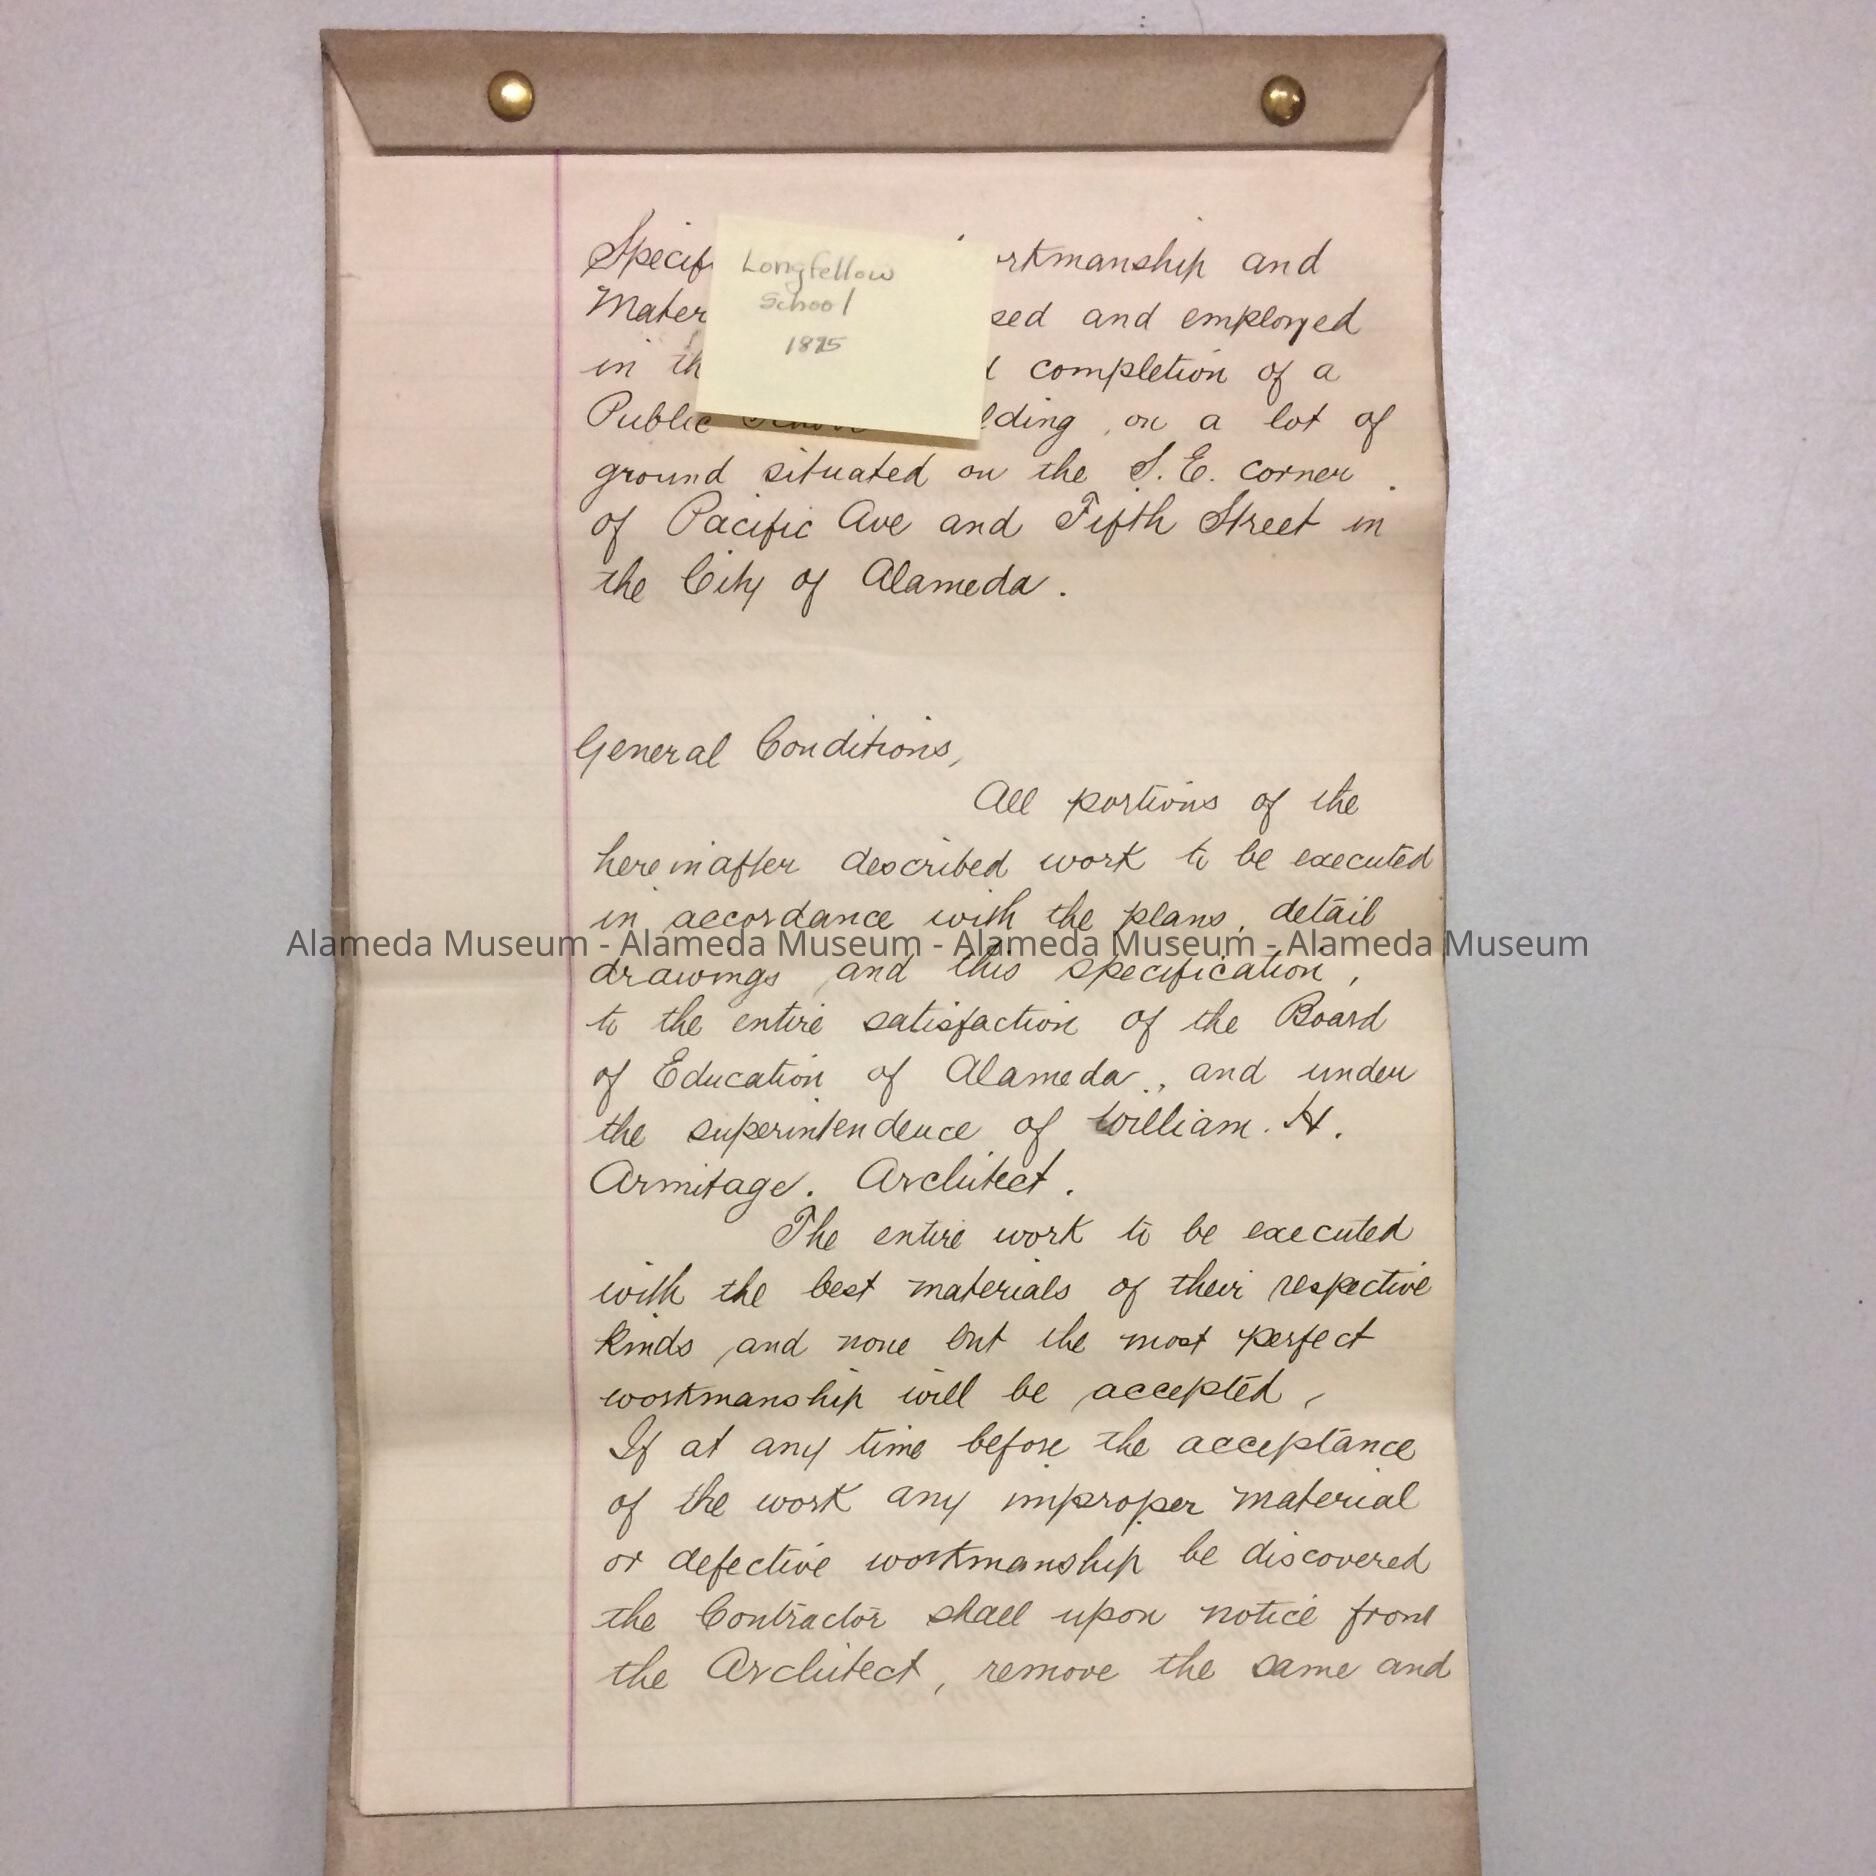 Longfellow
School
Specif rkmanship and
Mater sed and employed
in th completion of a
Public School lding, on a lot of
ground situated on the S. E. corner
of Pacific Ave and Fifth Street in
the City of Alameda.
General Conditions,
All portions of the
hereinafter described work to be executed
in accordance with the plans, detail
Alameda Museum - Alameda Museum - Alameda Museum - Alameda Museum
drawings and this specification,
to the entire satisfaction of the Board
of Education of Alameda, and under
the superintendence of William. H.
Armitage. Architect.
The entire work to be executed
with the best materials of their respective
kinds and none but the most perfect
workmanship will be accepted,
If at any time before the acceptance
of the work any improper material
or defective workmanship be discovered
the Contractor shall upon notice from
the Architect, remove the same and